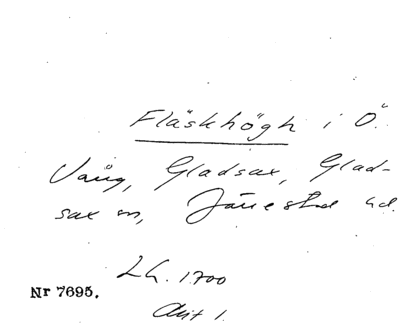 Fläskhögh i Ö.
Vång, Gladsax, Glad-
sax sn, Järrestad hd.
Lh. 1700
Nr 7695.
Akt 1.